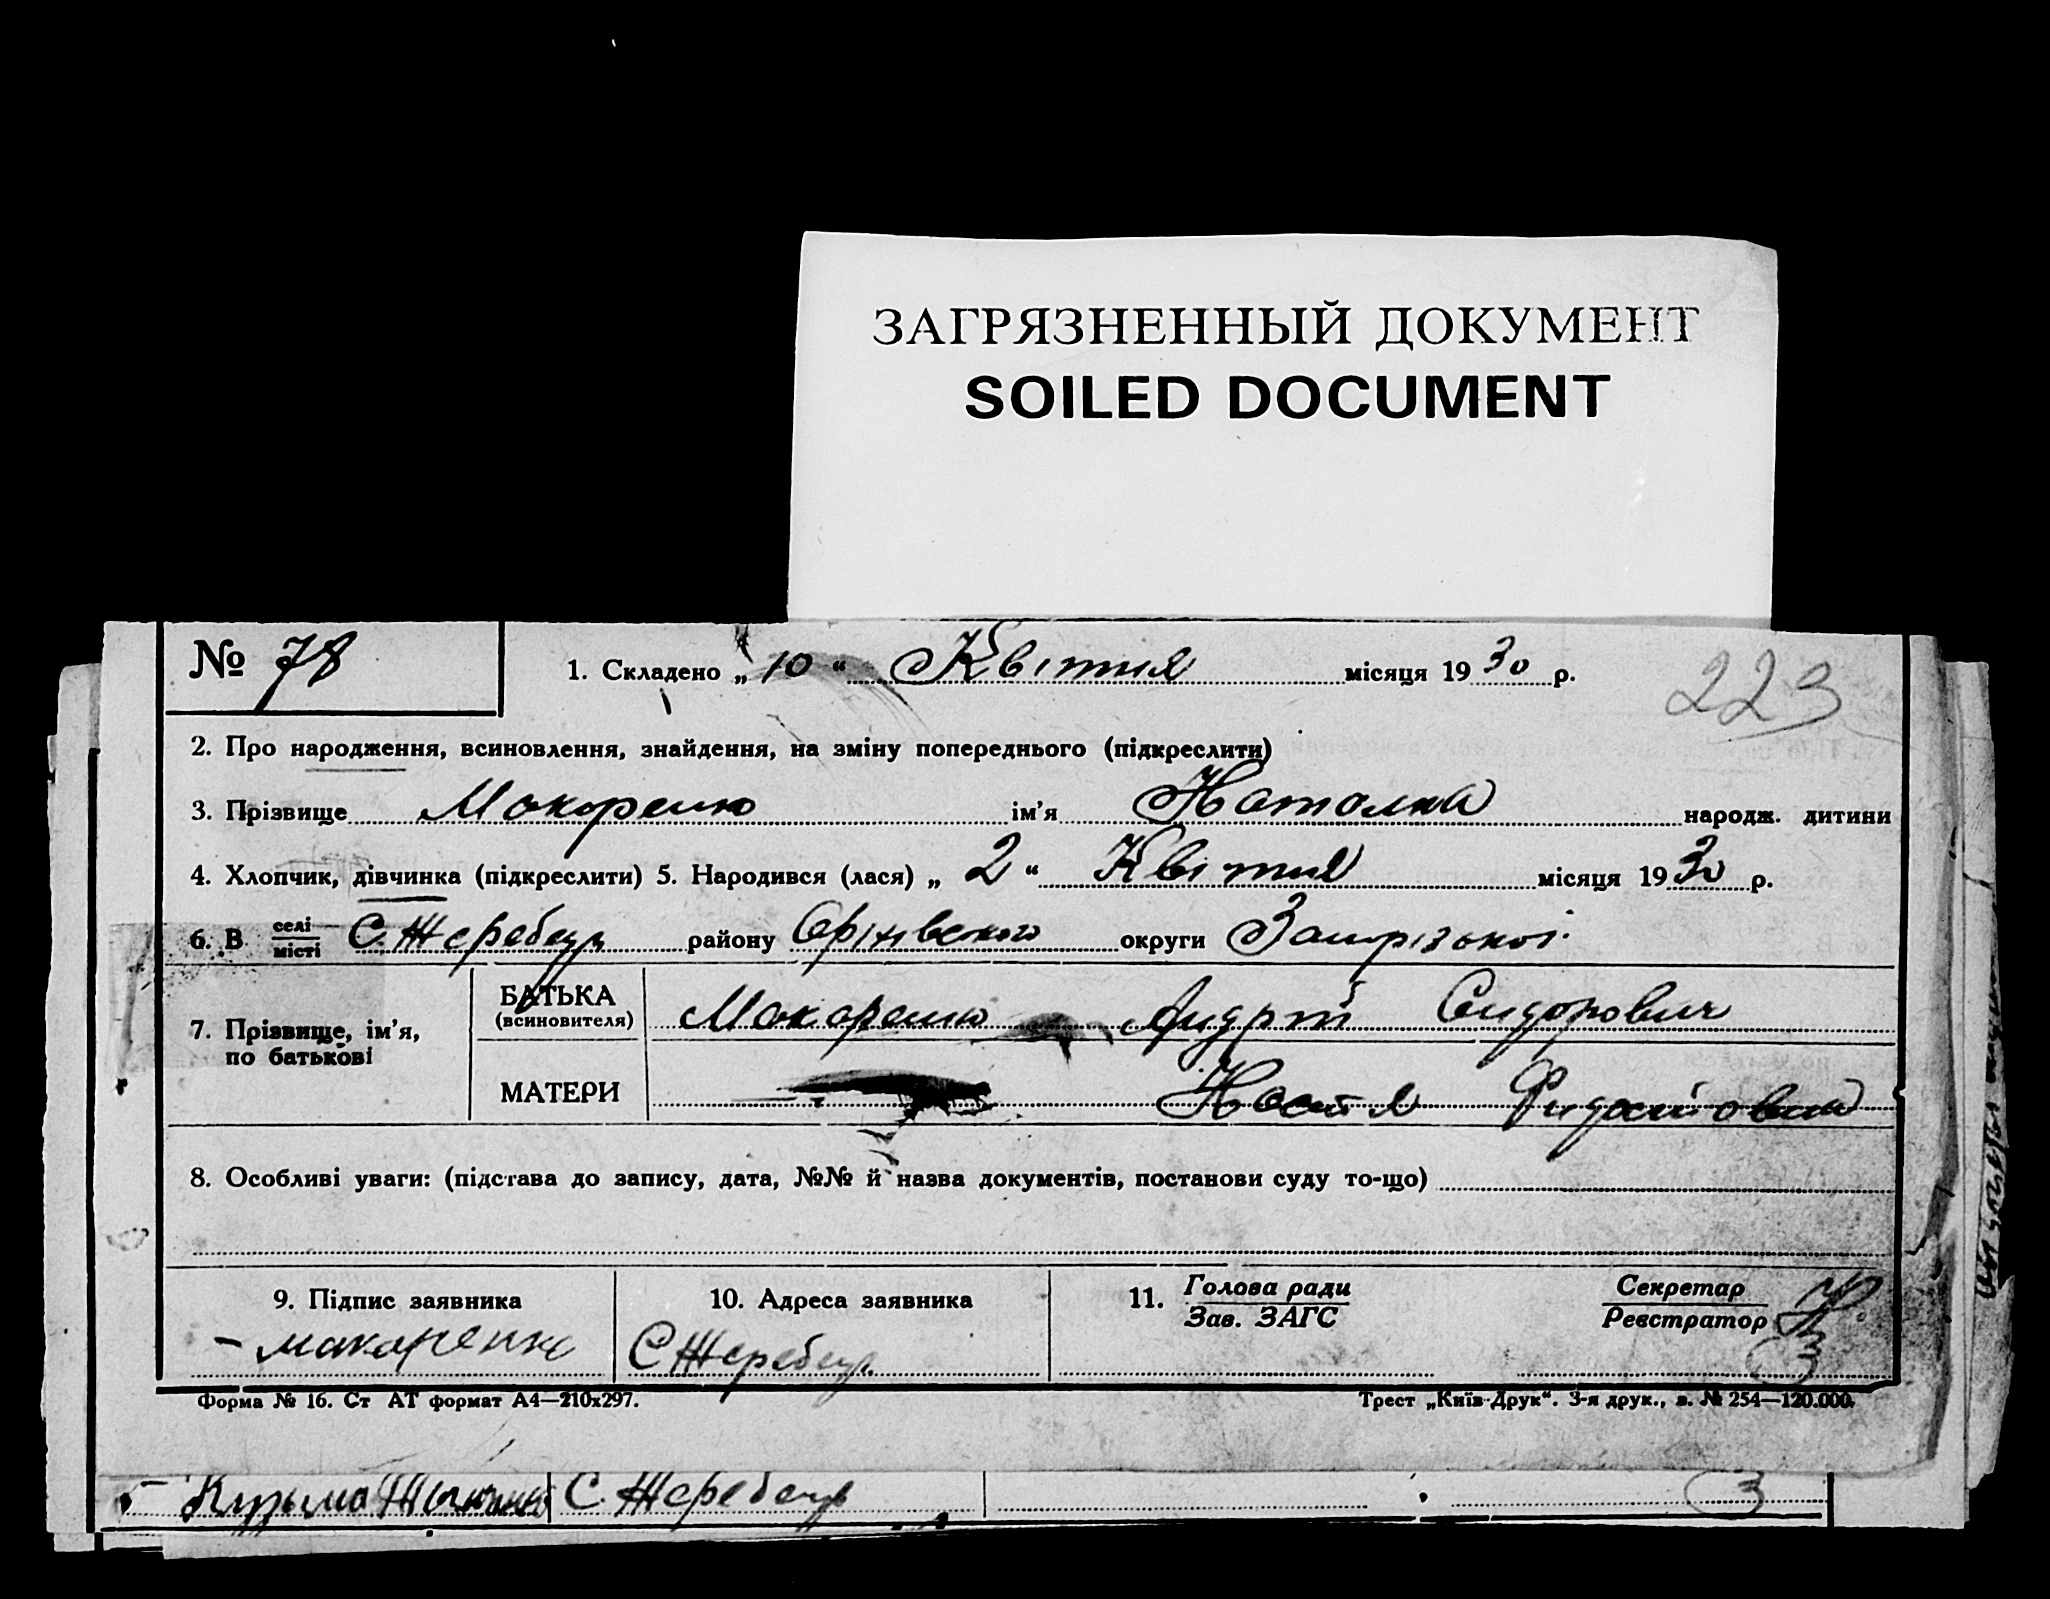 ЗАГРЯЗНЕННЫЙ ДОКУМЕНТ
SOILED DOCUMENT
№ 78
1. Складено „ 10 “ Квітня місяця 1930 р.
223
2. Про народження, всиновлення, знайдення, на зміну попереднього (підкреслити)
3. Прізвище Макаренко ім'я Наталка народж. дитини
4. Хлопчик, дівчинка (підкреслити) 5. Народився (лася) „ 2 “ Квітня місяця 1930 р.
6. В селі місті С. Жеребець району Оріхівського округи Запрізької
7. Прізвище, ім'я, по батькові
БАТЬКА (всиновителя) Макаренко Андрій Сидорович
МАТЕРИ Настя
8. Особливі уваги: (підстава до запису, дата, №№ й назва документів, постанови суду то-що)
9. Підпис заявника
Макаренко
10. Адреса заявника
С Жеребець
11. Голова ради
Зав. ЗАГС
Секретар
Реєстратор
3
Форма № 16. Ст АТ формат А4—210х297.
Трест „Київ-Друк“. 3-я друк., з. № 254—120.000.
Кузьма С. Жеребець 3